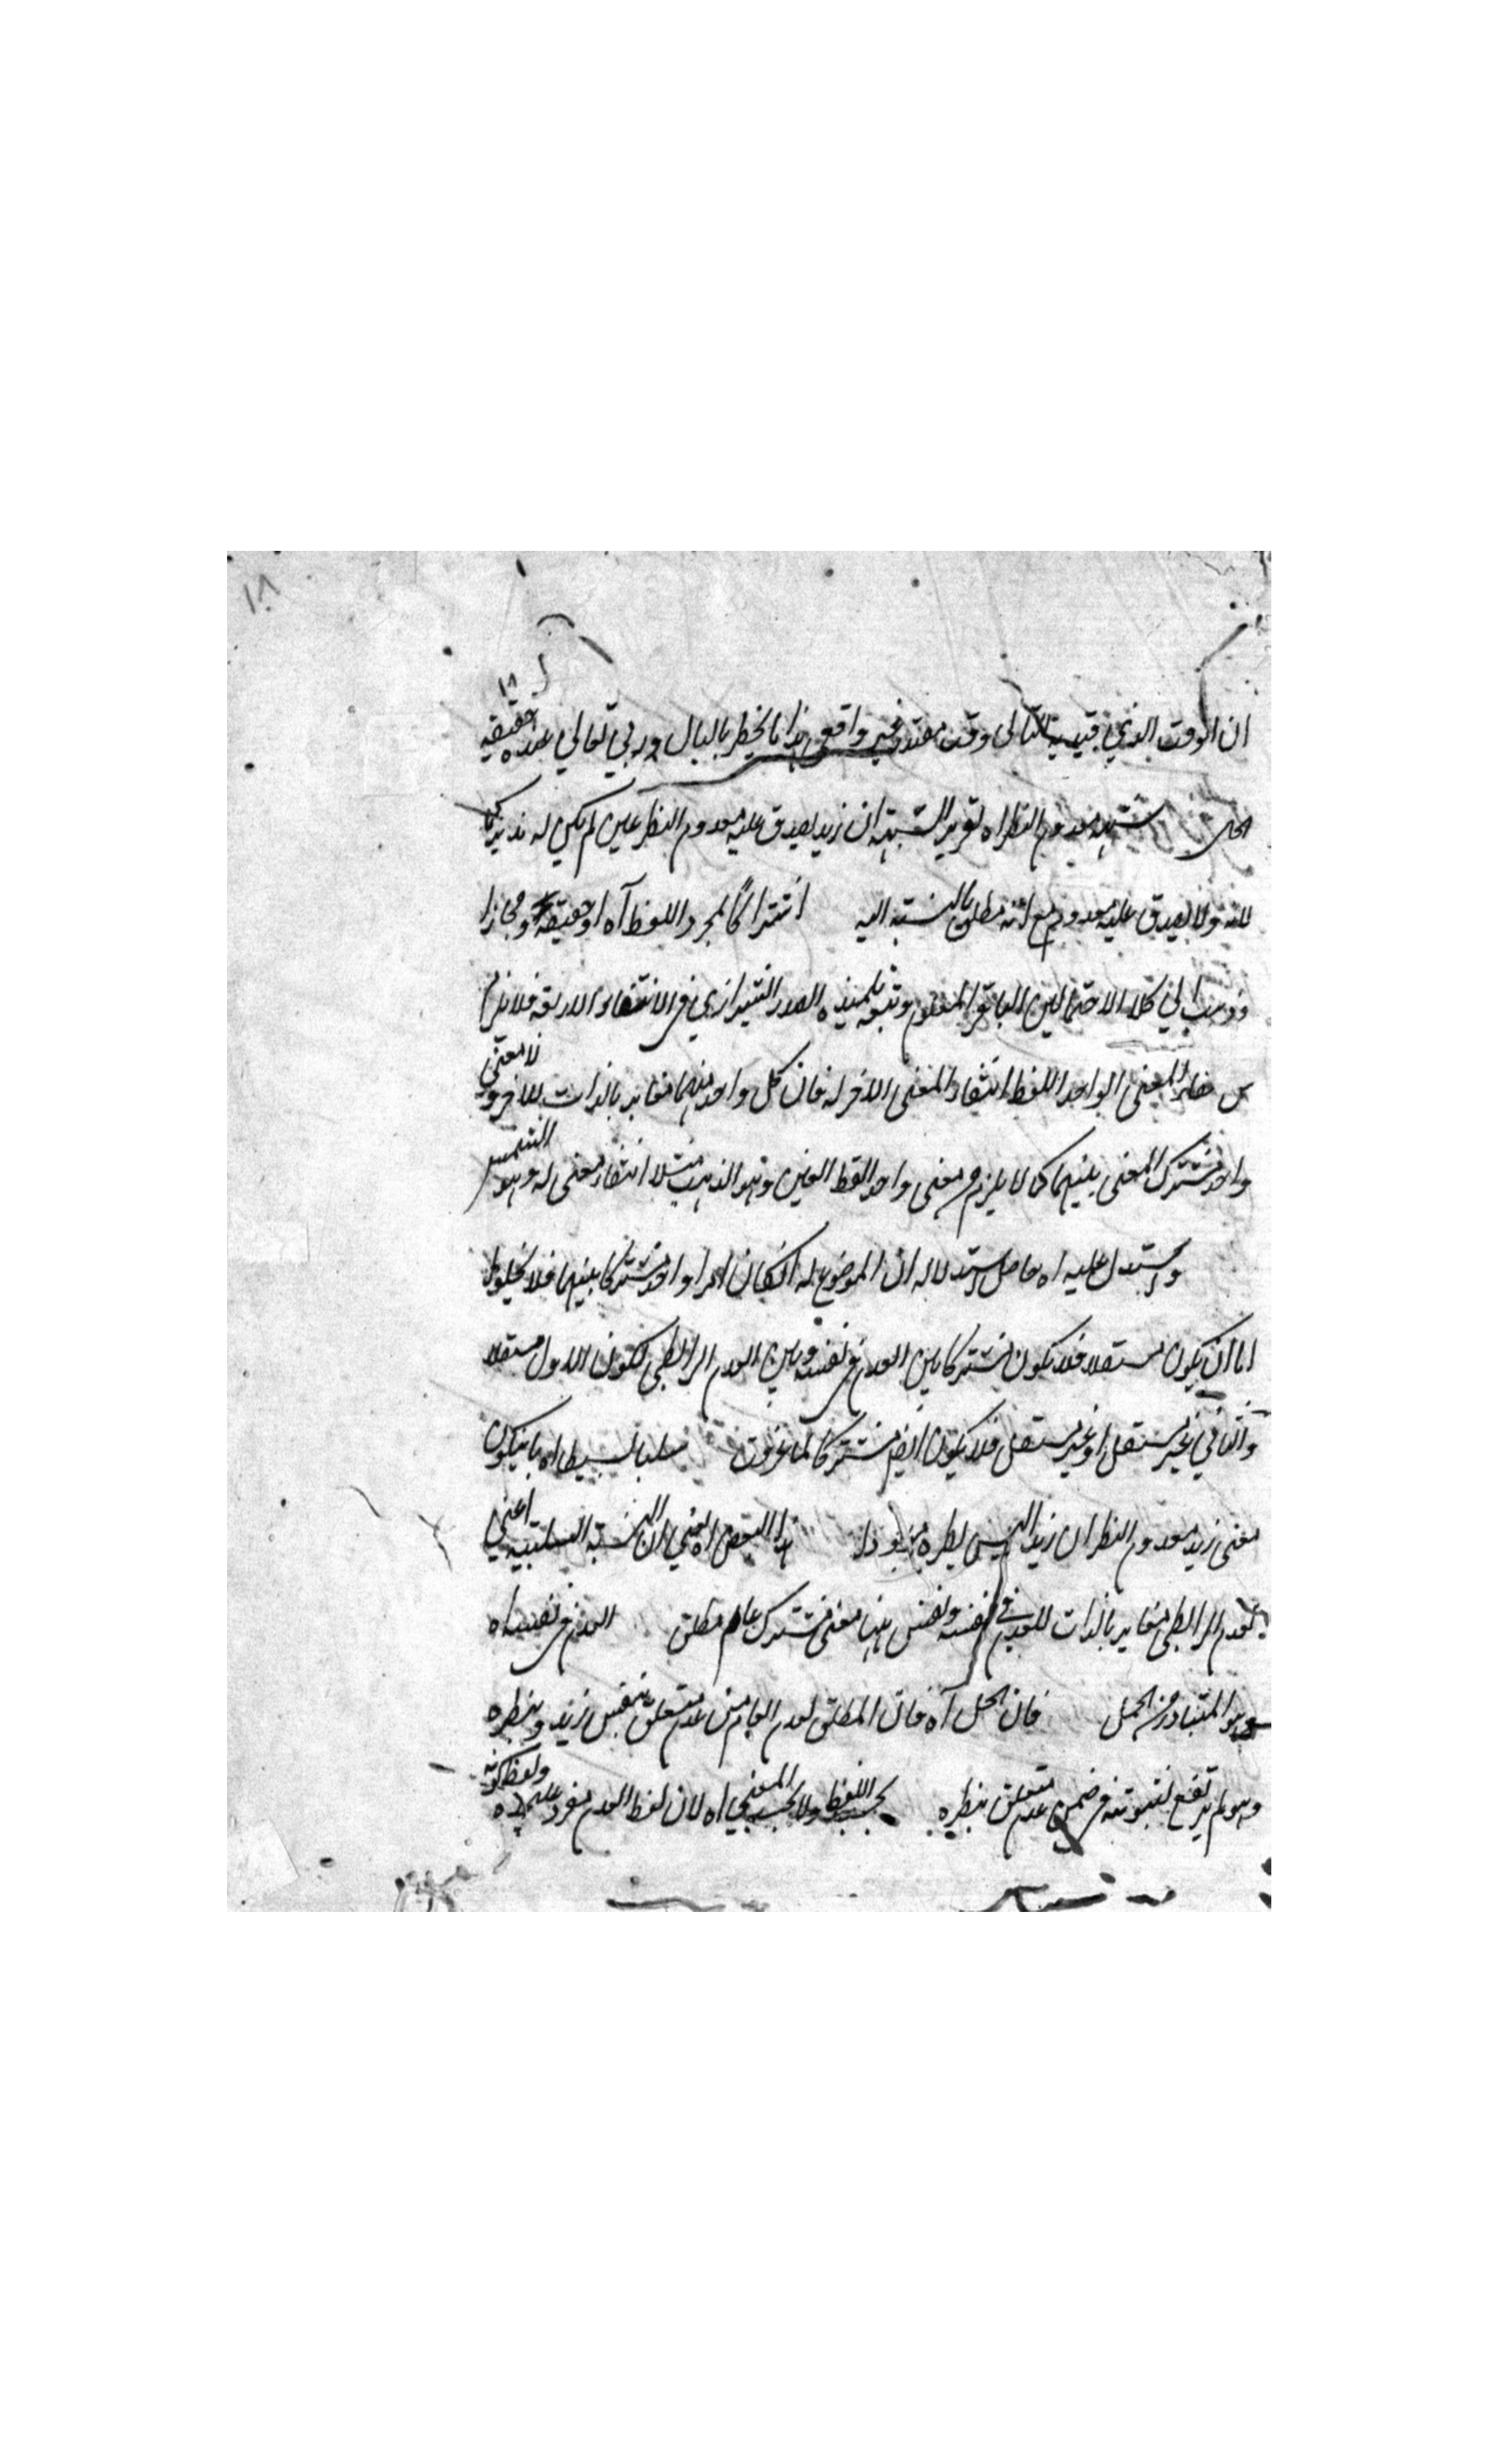 ١٨
١٨
ان الوقت الذي فيه التالى وقت مقدر غير واقعي هذا ما يخطر بالبال وربي تعالي عنده حقيقة
الحال شبهة معدوم النظر اه تقرير الشبهة ان زيد يصدق عليه معدوم النظر حين لم يكن له نظير كما
لله ولا يصدق عليه معدوم مع انه مطلق بالنسبة اليه اشتراكا بمجرد اللفظ آه او حقيقة ومجازا
وذهب الي كلا الاحتمالين الباقر المعلوم وتبعه تلميذه الصدر الشيرازي في الاسفار الاربعة فلا يلزم
من المعنى الواحد اللفظ انتفاء المعنى الاخر له فان كل واحد منهما مغاير بالذات للاخر ولا معنى
واحد مشترك المعنى بينهما كما لا يلزم من معنى واحد لفظ العين وهو الذهب مثلا انتفاء معنى له وهو الشمس
ويستدل عليه اه حاصل استدلاله ان الموضوع له ان كان امرا واحدا مشتركا بينهما فلا يخلو
اما ان يكون مستقلا فلا يكون مشتركا بين العدم في نفسه وبين العدم الرابطي لكون الاول مستقلا
والثاني غير مستقل او غير مستقل فلا يكون ايضا مشتركا لما عرفت سلبا بسيطا اه بان يكون
معنى زيد معدوم النظير ان زيدا ليس نظيره موجودا هذا البعض اه يعني ان النسبة السلبية اعني
العدم الرابطي مغاير بالذات للعدم في نفسه وليس هنا معنى مشترك عام مطلق العدم في نفسه اه
وهو المتبادر من الحمل فان الحمل آه فان المطلق لعدم العام من عدم متعلق بنفس زيد وبنظيره
وهو لم يرتفع لثبوته في ضمن عدم متعلق بنظيره بحسب اللفظ ولا بحسب المعنى اه لان لفظ العدم مفرد